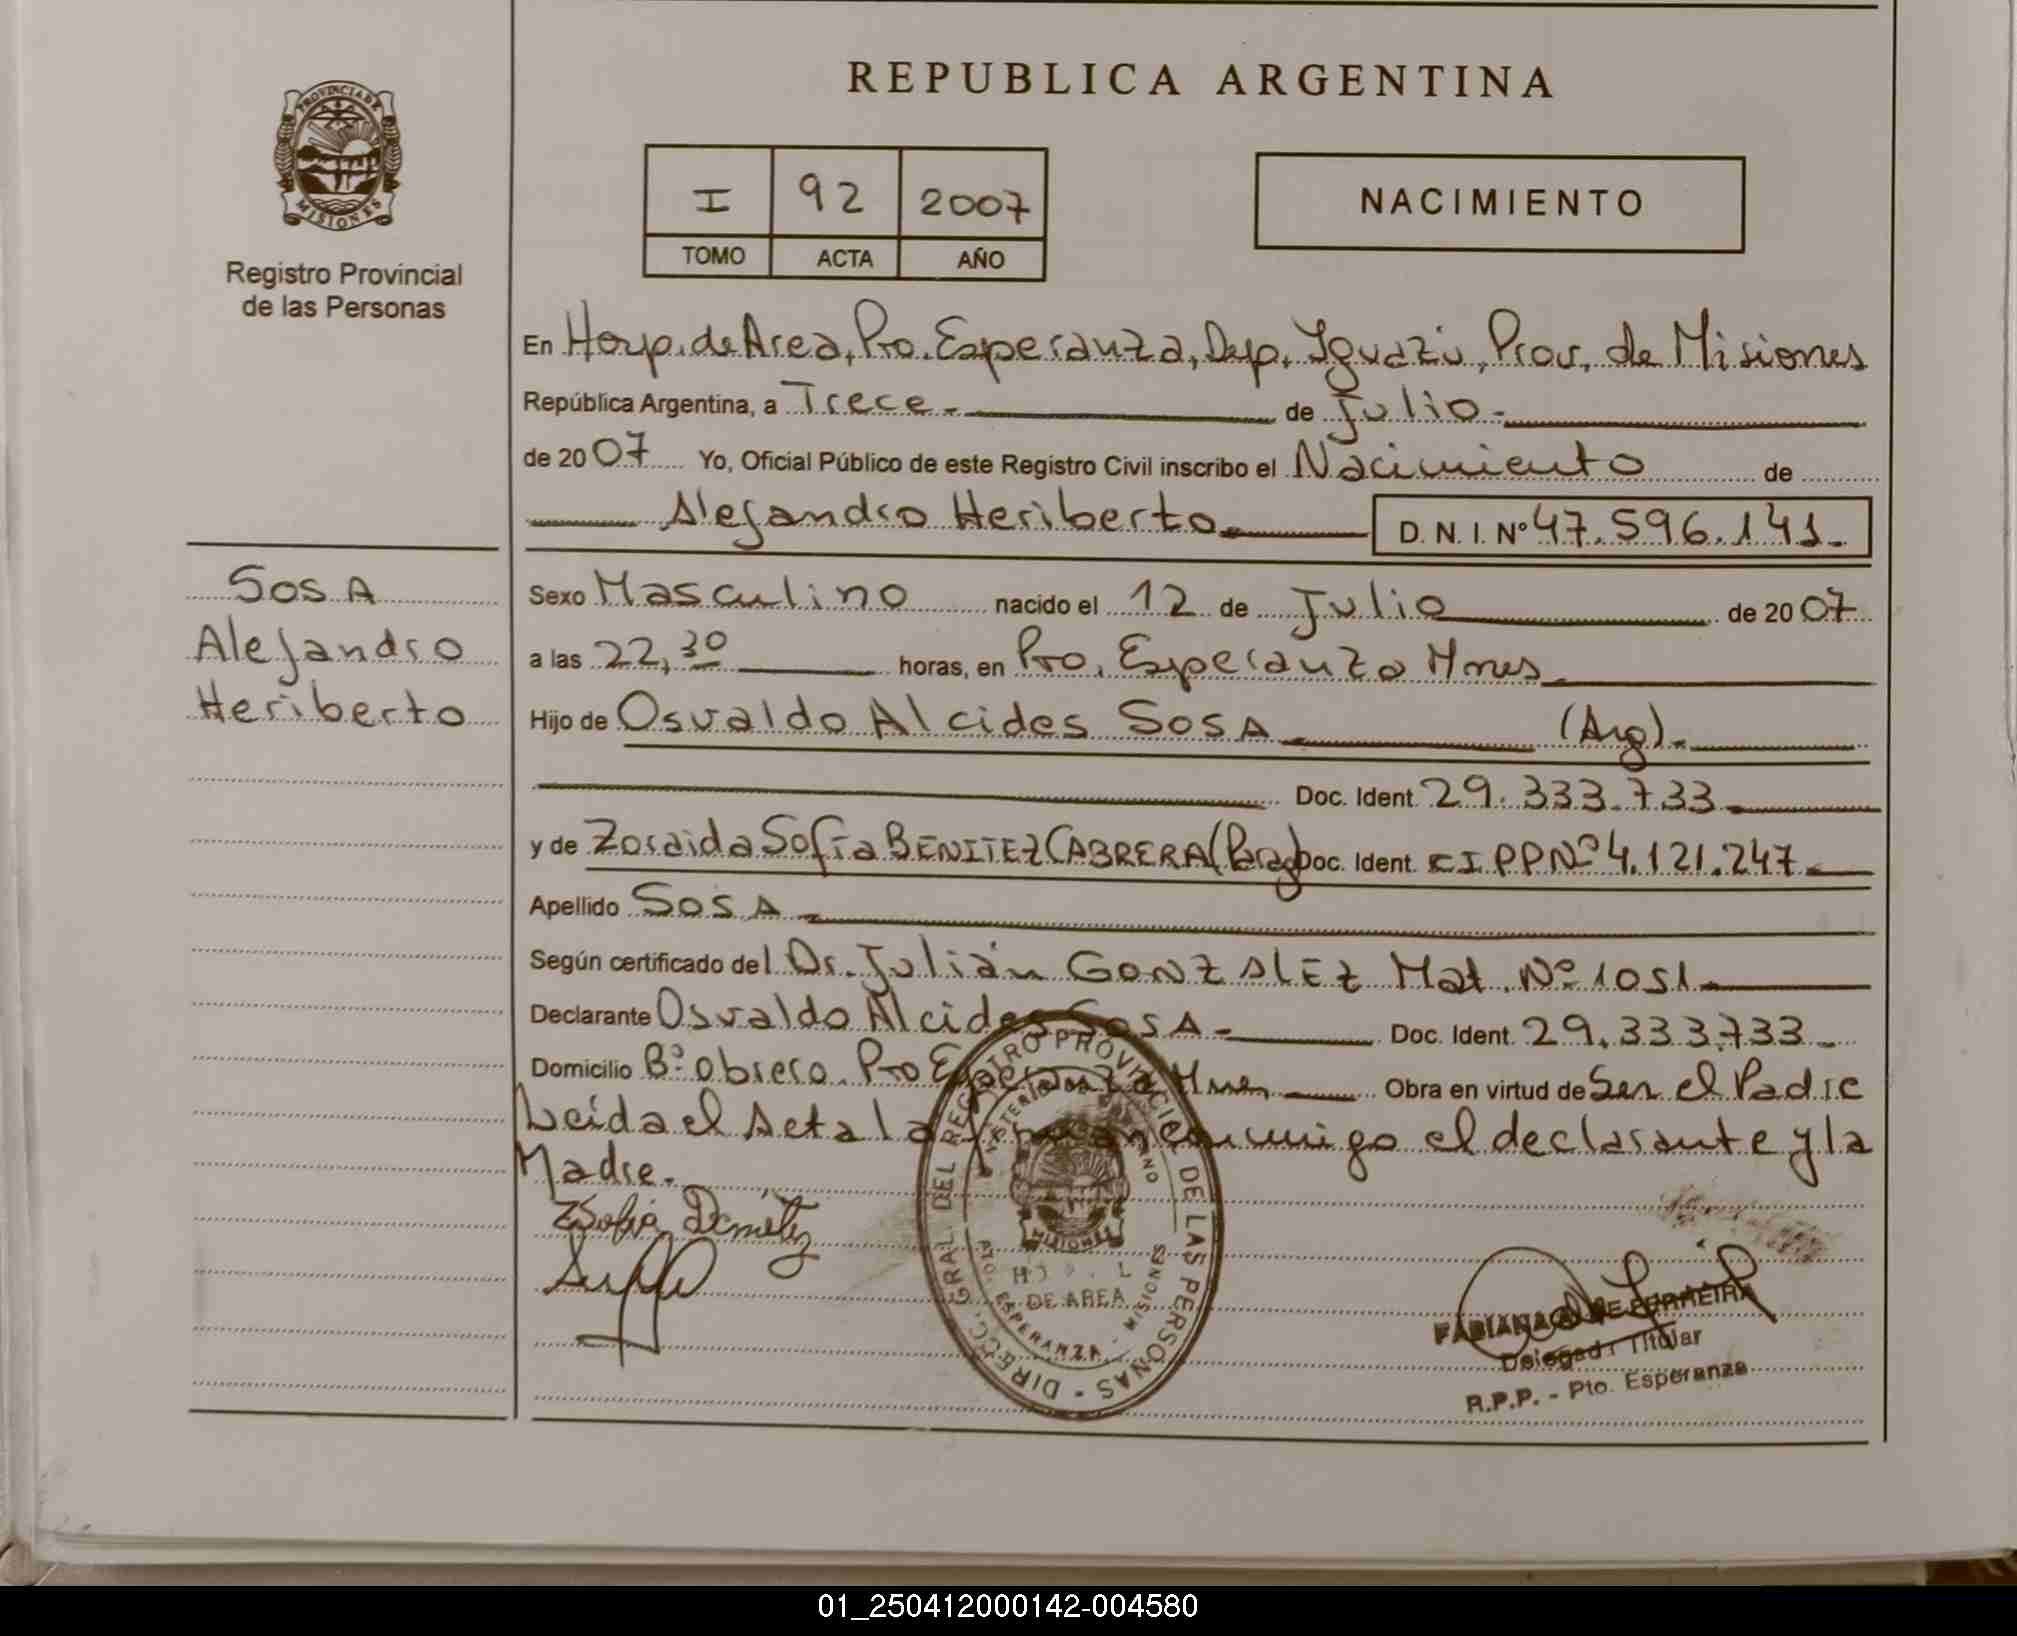 REPUBLICA ARGENTINA
PROVINCIA DE
MISIONES
Registro Provincial
de las Personas
I 92 2007
TOMO ACTA AÑO
NACIMIENTO
En Hosp. de Area, Pto. Esperanza, Dep. Iguazú, Prov. de Misiones
República Argentina, a Trece.- de Julio.-
de 2007 Yo, Oficial Público de este Registro Civil inscribo el Nacimiento de
Alejandro Heriberto.- D. N. I. Nº 47.596.141.-
SOSA
Alejandro
Heriberto
Sexo Masculino nacido el 12 de Julio de 2007
a las 22,30 horas, en Pto. Esperanza Mnes.
Hijo de Osvaldo Alcides SOSA (Arg).-
Doc. Ident. 29.333.733.-
y de Zoraida Sofía BENITEZ CABRERA (Parag) Doc. Ident. CIPPNº 4.121.247.-
Apellido SOSA.-
Según certificado del Dr. Julián GONZALEZ Mat. Nº 1051.-
Declarante Osvaldo Alcides SOSA.- Doc. Ident. 29.333.733.-
Domicilio Bº Obrero. Pto Esperanza Mnes Obra en virtud de Ser el Padre
Leída el Acta la firman conmigo el declarante y la
Madre.
ZSofia Benitez
DIRECC. GRAL. DEL REGISTRO PROVINCIAL DE LAS PERSONAS -
MISIONES
DE AREA
PTO. ESPERANZA - MISIONES
FABIANA DE FERREIRA
Delegada Titular
R.P.P. - Pto. Esperanza
01_250412000142-004580